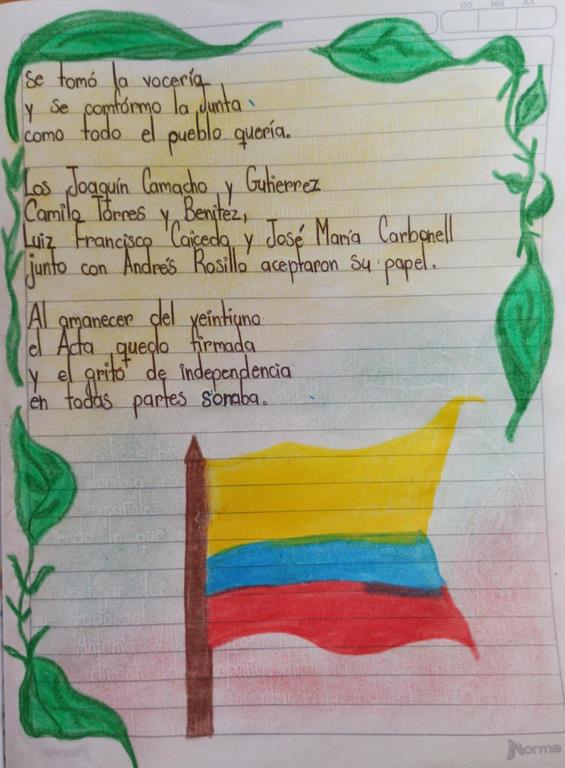 DD MM AA
se tomó la vocería
y se comformo la Junta
como todo el pueblo quería.
Los Joaquín Camacho y Gutierrez
Camilo Torres y Benitez,
Luiz Francisco Caicedo y José María Carbonell
junto con Andrés Rosillo aceptaron su papel.
Al amanecer del veintiuno
el Acta quedo firmada
y el grito de independencia
en todas partes sonaba.
Norma